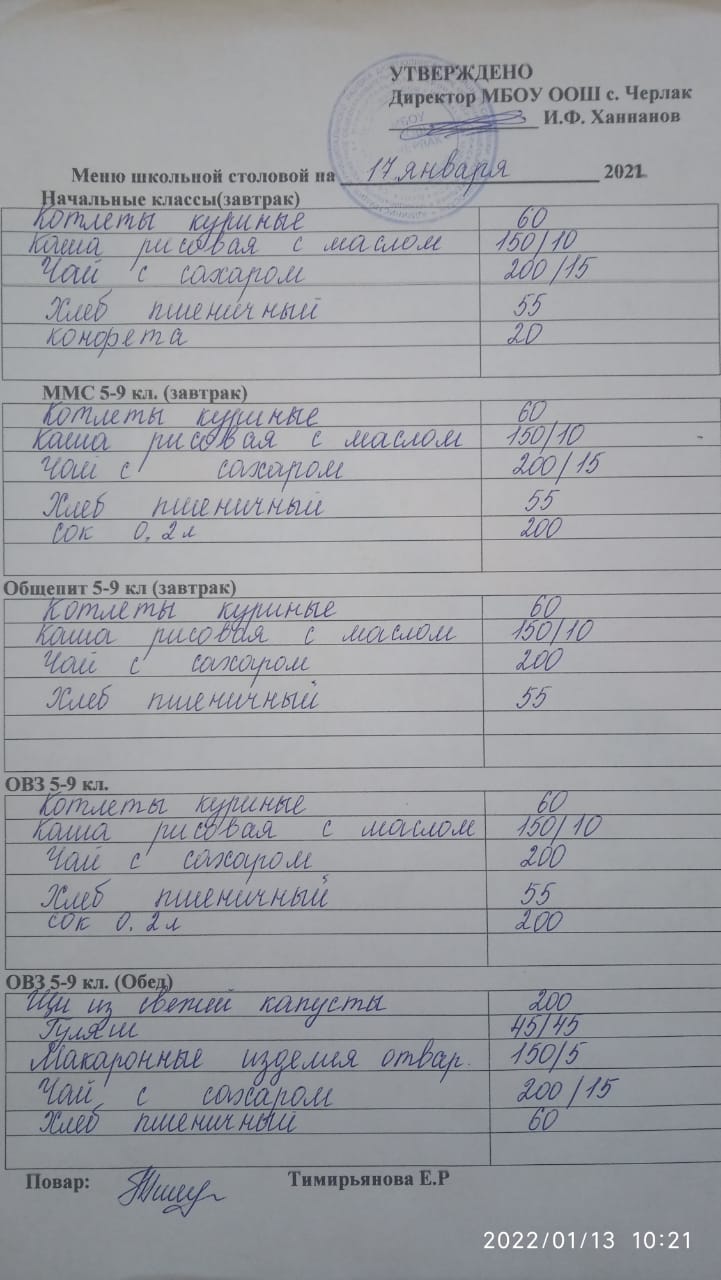 УТВЕРЖДЕНО
Директор МБОУ ООШ с. Черлак
И.Ф. Ханнанов
Меню школьной столовой на 17 января 2021
Начальные классы(завтрак)
Котлеты куриные 60
Каша рисовая с маслом 150/10
Чай с сахаром 200/15
Хлеб пшеничный 55
конфета 20
ММС 5-9 кл. (завтрак)
Котлеты куриные 60
Каша рисовая с маслом 150/10
Чай с сахаром 200/15
Хлеб пшеничный 55
сок 0,2л 200
Общепит 5-9 кл (завтрак)
Котлеты куриные 60
Каша рисовая с маслом 150/10
Чай с сахаром 200
Хлеб пшеничный 55
ОВЗ 5-9 кл.
Котлеты куриные 60
Каша рисовая с маслом 150/10
Чай с сахаром 200
Хлеб пшеничный 55
сок 0.2л 200
ОВЗ 5-9 кл. (Обед)
Щи из свежей капусты 200
Гуляш 45/45
Макаронные изделия отвар. 150/5
Чай с сахаром 200/15
Хлеб пшеничный 60
Повар: Тимирьянова Е.Р
2022/01/13 10:21